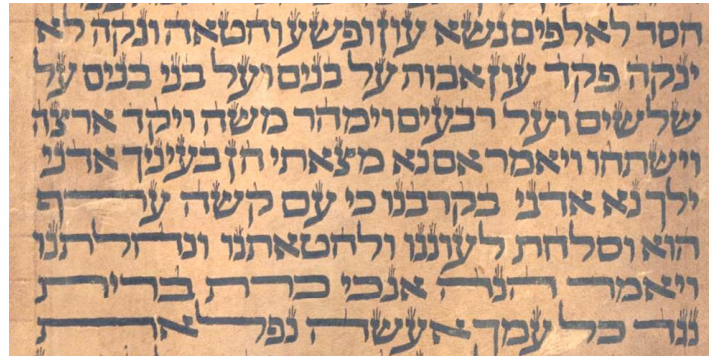 חסד לאלפים נשא עון ופשע וחטאה ונקה לא
ינקה פקד עון אבות על בנים ועל בני בנים על
שלשים ועל רבעים וימהר משה ויקד ארצה
וישתחו ויאמר אם נא מצאתי חן בעיניך אדני
ילך נא אדני בקרבנו כי עם קשה ערף
הוא וסלחת לעוננו ולחטאתנו ונחלתנו
ויאמר הנה אנכי כרת ברית
נגד כל עמך אעשה נפלאת